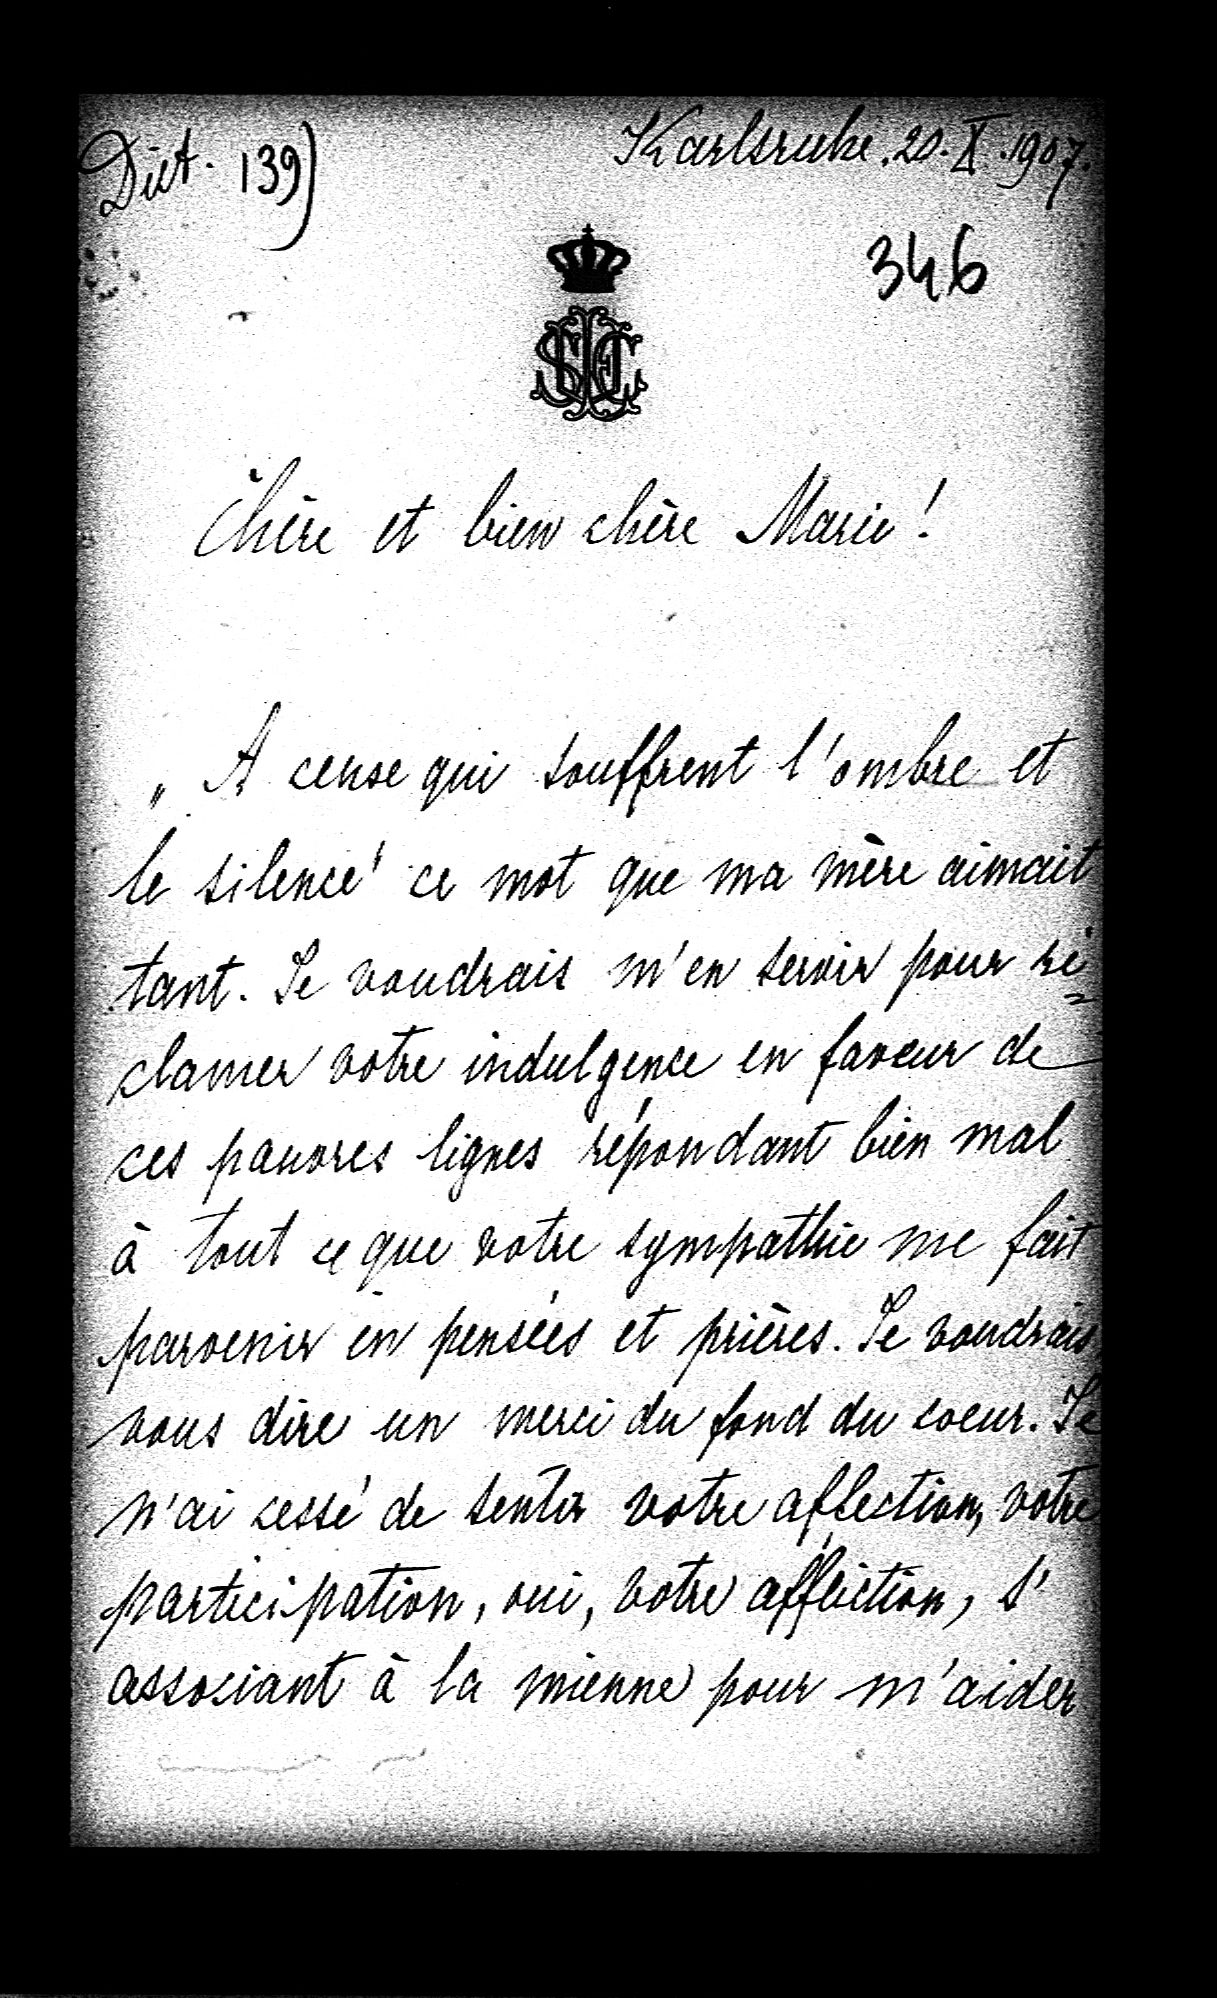 Dict. 139)
Karlsruhe. 20. X. 1907.
346
Chère et bien chère Marie!
„A ceux qui souffrent l'ombre et
le silence' ce mot que ma mère aimait
tant. Je voudrais m'en servir pour ré=
clamer votre indulgence en faveur de
ces pauvres lignes répondant bien mal
à tout ce que votre sympathie me fait
parvenir en pensées et prières. Je voudrais
vous dire un merci du fond du coeur. Je
n'ai cessé de sentir votre affection, votre
participation, oui, votre affliction, s'
associant à la mienne pour m'aider